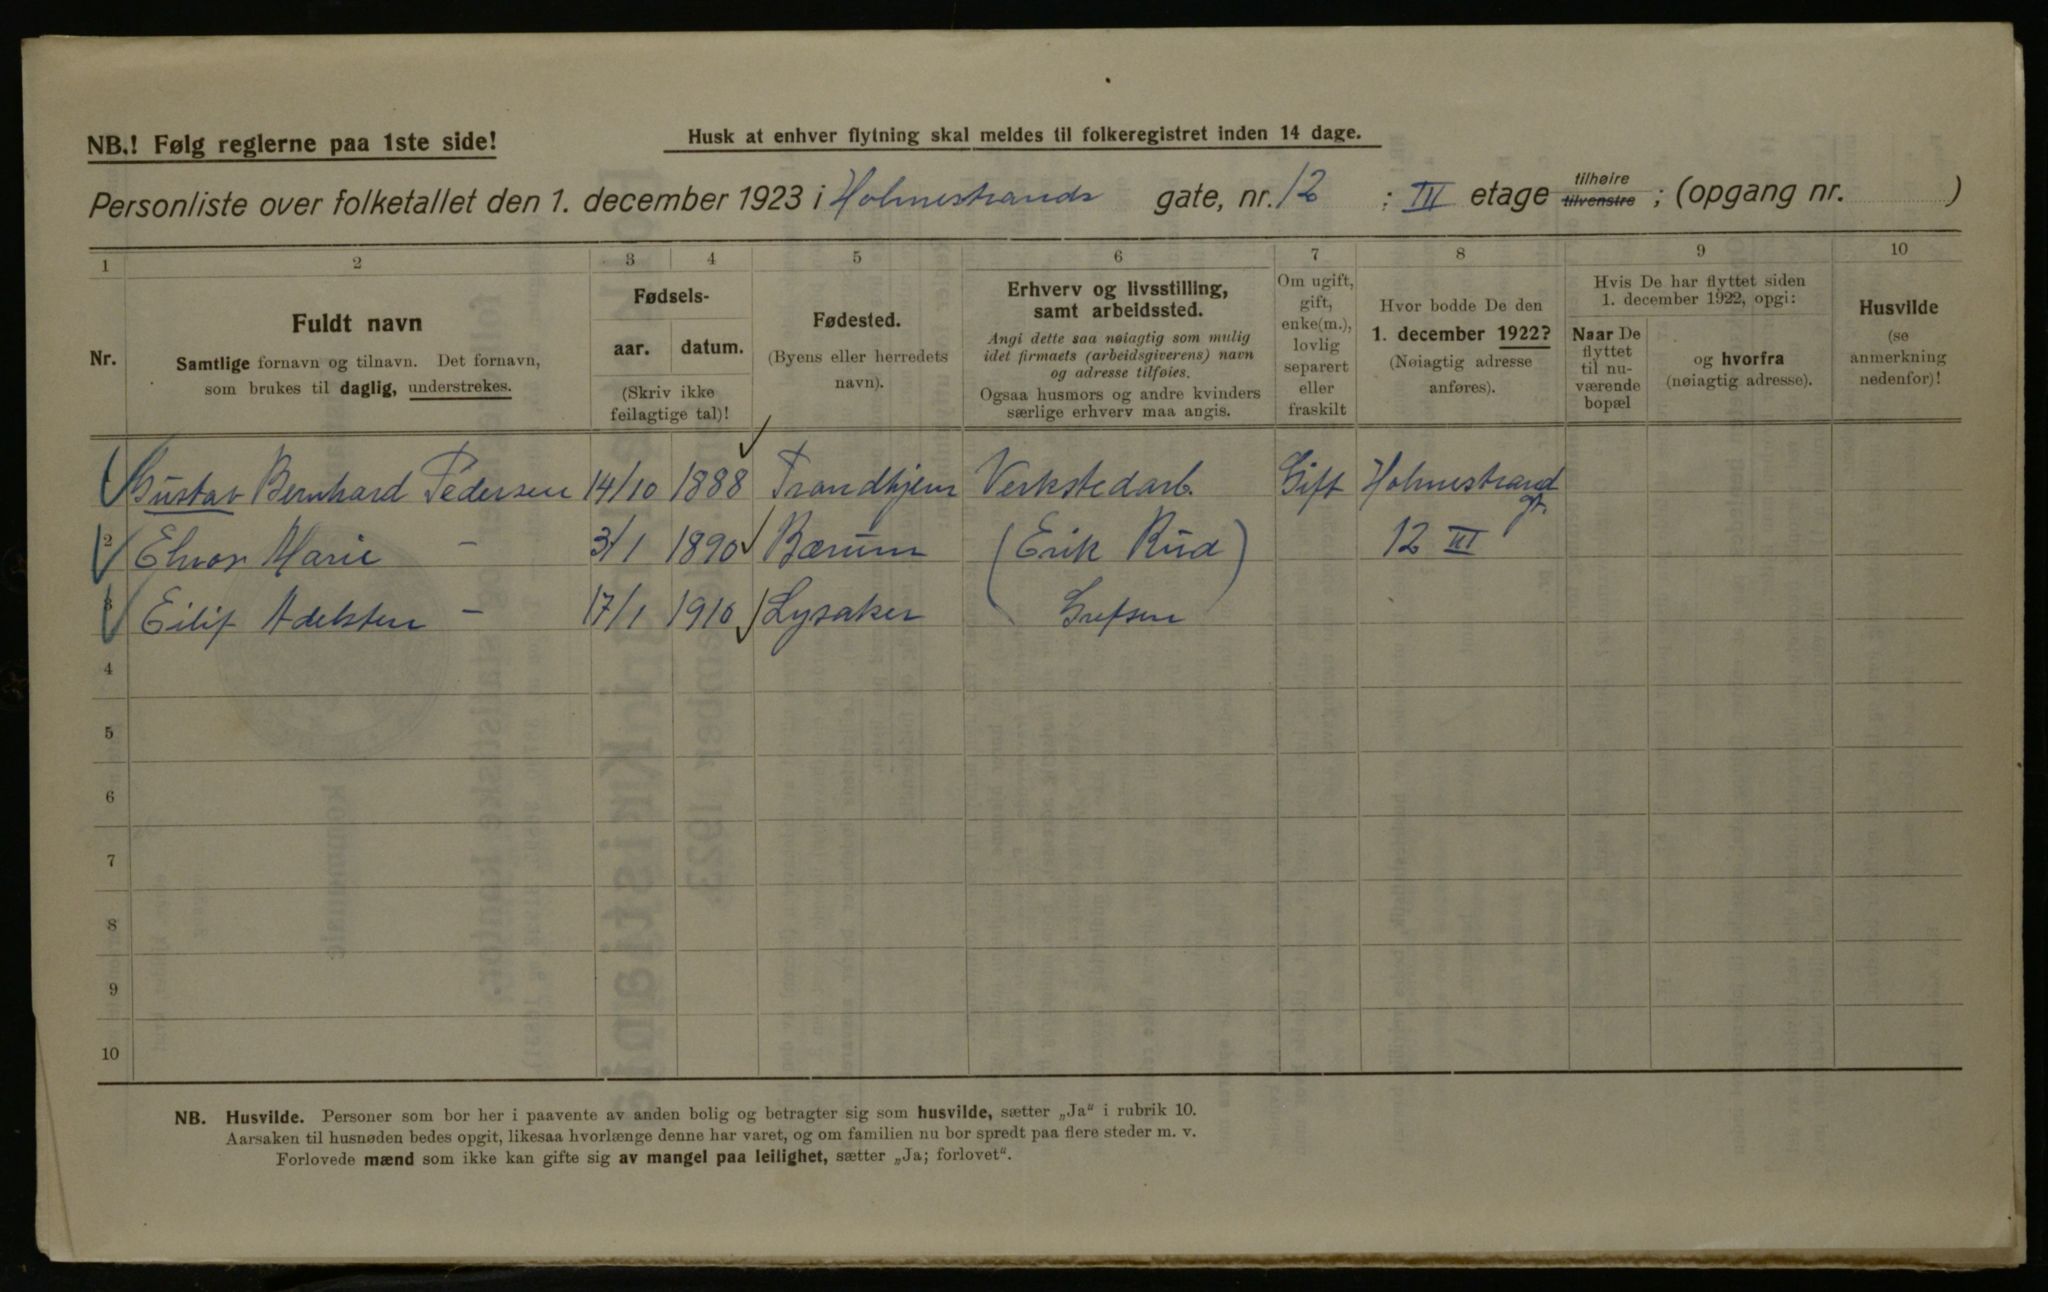 NB.! Følg reglerne paa 1ste side!
Husk at enhver flytning skal meldes til folkeregistret inden 14 dage.
Personliste over folketallet den 1. december 1923 i Holmestrands gate, nr. 12 ; III etage tilhøire tilvenstre ; (opgang nr. )
1 2 3 4 5 6 7 8 9 10
Nr.
Fuldt navn
Samtlige fornavn og tilnavn. Det fornavn,
som brukes til daglig, understrekes.
Fødsels-
aar. datum.
(Skriv ikke
feilagtige tal)!
Fødested.
(Byens eller herredets
navn).
Erhverv og livsstilling,
samt arbeidssted.
Angi dette saa nøiagtig som mulig
idet firmaets (arbeidsgiverens) navn
og adresse tilføies.
Ogsaa husmors og andre kvinders
særlige erhverv maa angis.
Om ugift,
gift,
enke(m.),
lovlig
separert
eller
fraskilt
Hvor bodde De den
1. december 1922?
(Nøiagtig adresse
anføres).
Hvis De har flyttet siden
1. december 1922, opgi:
Naar De
flyttet
til nu-
værende
bopæl
og hvorfra
(nøiagtig adresse).
Husvilde
(se
anmerkning
nedenfor)!
Gustav Bernhard Pedersen 14/10 1888 Trondhjem Verkstedarb. Gift Holmestrand gt.
2 Marie - 3/1 1890 Bærum (Erik Rud) 12 III
3 Eilif Adelsten - 17/1 1910 Lysaker Grefsen
4
5
6
7
8
9
10
NB. Husvilde. Personer som bor her i paavente av anden bolig og betragter sig som husvilde, sætter „Ja“ i rubrik 10.
Aarsaken til husnøden bedes opgit, likesaa hvorlænge denne har varet, og om familien nu bor spredt paa flere steder m. v.
Forlovede mænd som ikke kan gifte sig av mangel paa leilighet, sætter „Ja; forlovet“.